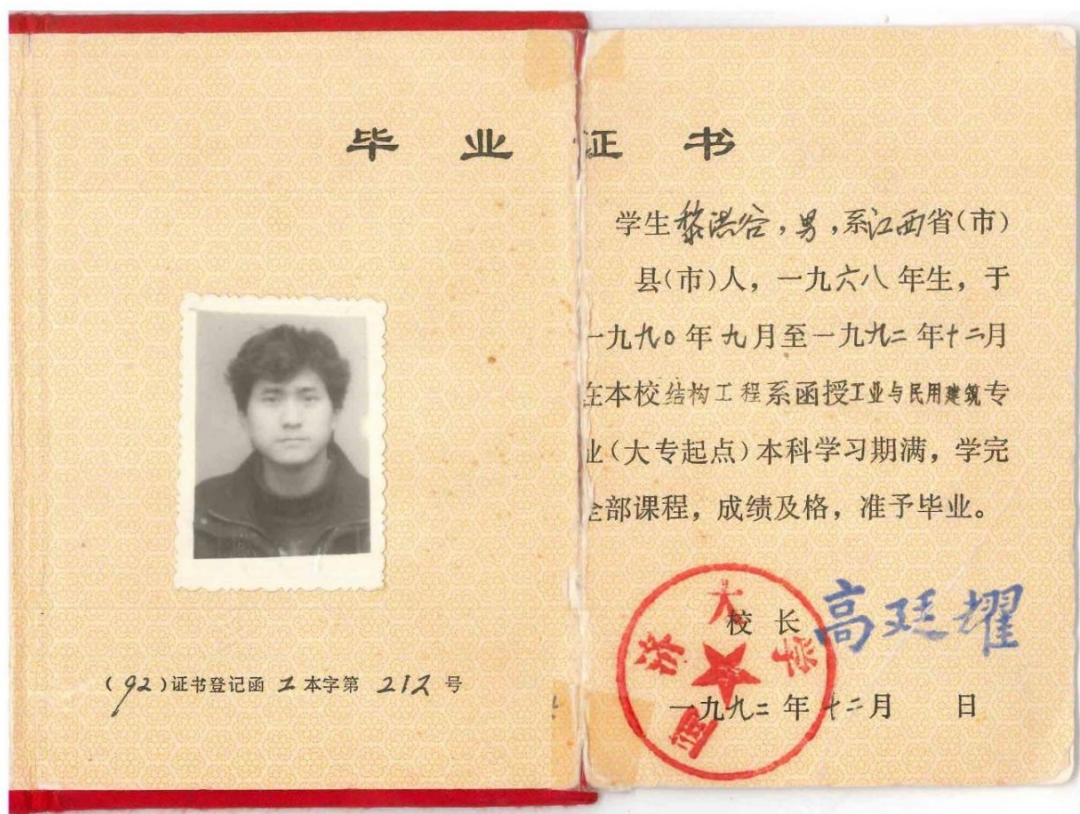 毕业证书
学生黎洪谷,男,系江西省(市)
县(市)人,一九六八年生,于
一九九〇年九月至一九九二年十二月
在本校结构工程系函授工业与民用建筑专
业(大专起点)本科学习期满,学完
全部课程,成绩及格,准予毕业。
校长 高廷耀
同济大学
一九九二年十二月 日
(92)证书登记函工本字第 212 号